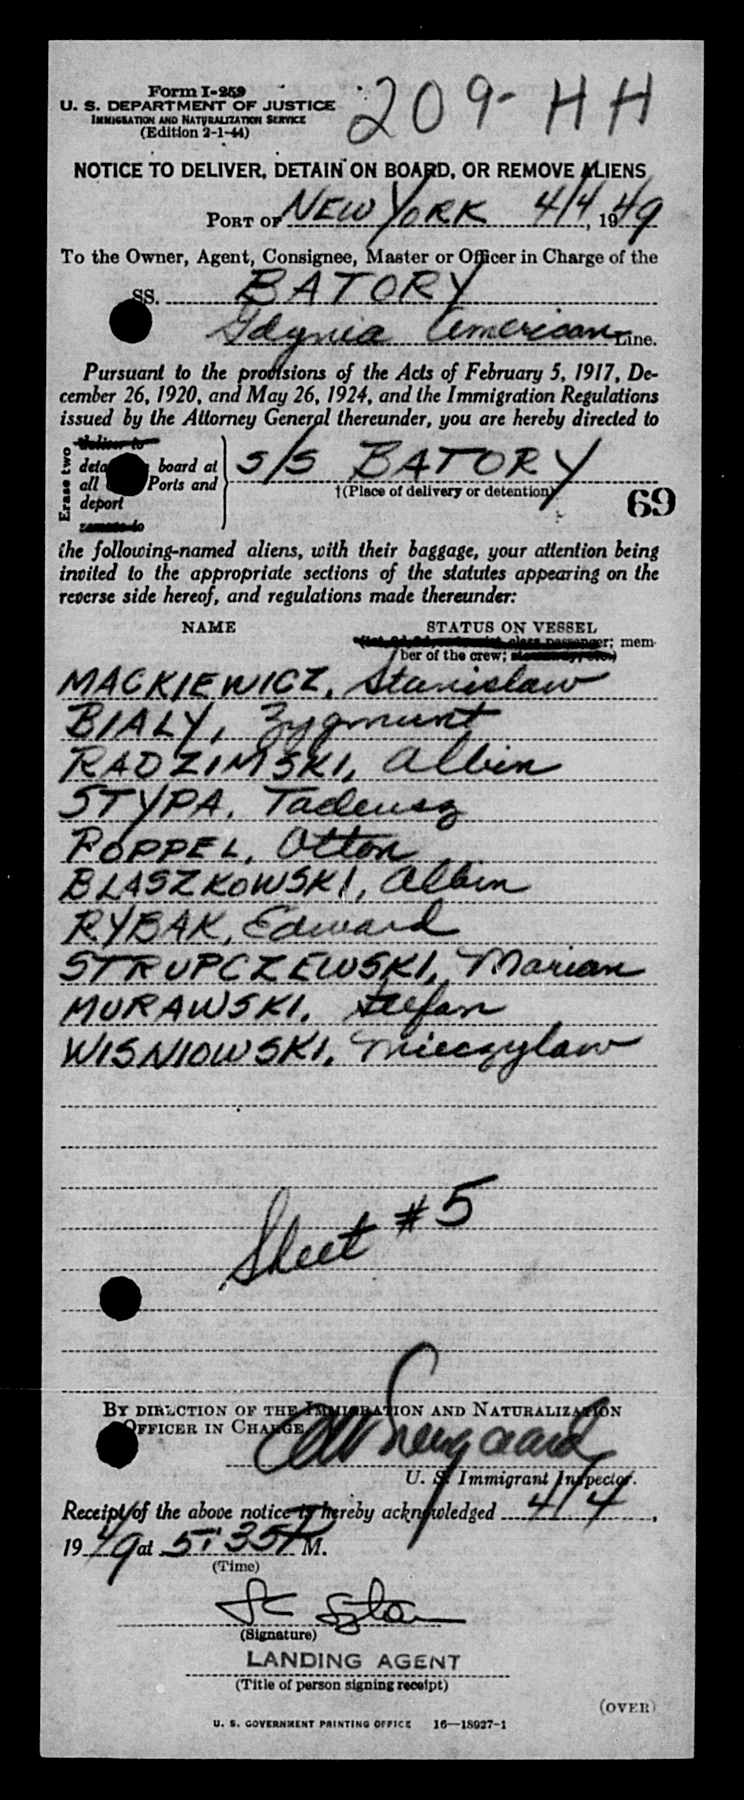 Form I-259
209-HH
U. S. DEPARTMENT OF JUSTICE
IMMIGRATION AND NATURALIZATION SERVICE
(Edition 2-1-44)
NOTICE TO DELIVER, DETAIN ON BOARD, OR REMOVE ALIENS
PORT OF NEW YORK 4/4, 1949
To the Owner, Agent, Consignee, Master or Officer in Charge of the
SS. BATORY
Gdynia American Line.
Pursuant to the provisions of the Acts of February 5, 1917, De-
cember 26, 1920, and May 26, 1924, and the Immigration Regulations
issued by the Attorney General thereunder, you are hereby directed to
Erase two
deliver to
board at
all Ports and
deport
remove to
S/S BATORY
†(Place of delivery or detention)
69
the following-named aliens, with their baggage, your attention being
invited to the appropriate sections of the statutes appearing on the
reverse side hereof, and regulations made thereunder:
NAME STATUS ON VESSEL
class passenger; mem-
ber of the crew;
MACKIEWICZ, Stanislaw
BIALY, Zygmunt
RADZIMSKI, Albin
STYPA, Tadeusz
POPPEL, Otton
BLASZKOWSKI, Albin
RYBAK, Edward
STRUPCZEWSKI, Marian
MURAWSKI, Stefan
WISNIOWSKI, Mieczylaw
Sheet #5
BY DIRECTION OF THE IMMIGRATION AND NATURALIZATION
OFFICER IN CHARGE
U. S. Immigrant Inspector.
Receipt of the above notice is hereby acknowledged 4/4,
1949 at 5:35 P M.
(Time)
(Signature)
LANDING AGENT
(Title of person signing receipt)
(OVER)
U. S. GOVERNMENT PRINTING OFFICE 16—18927-1